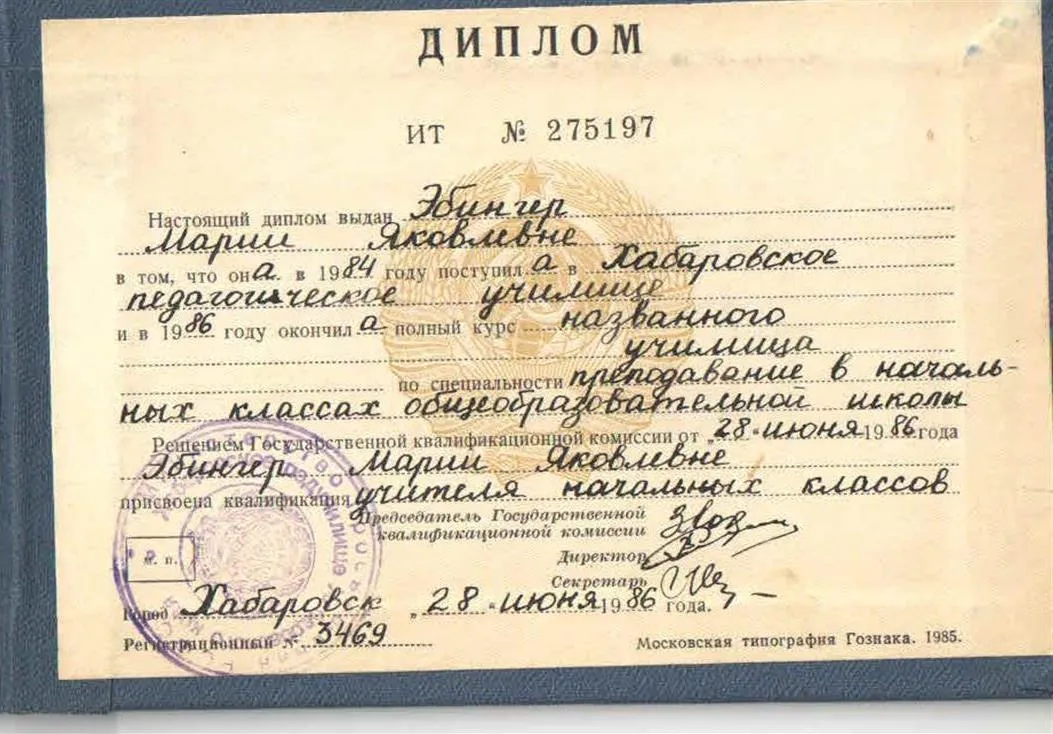 ДИПЛОМ
ИТ № 275197
Настоящий диплом выдан Эбингер
Марии Яковлевне
в том, что она в 1984 году поступила в Хабаровское
педагогическое училище
и в 1986 году окончила полный курс названного
училища
по специальности преподавание в началь-
ных классах общеобразовательной школы
Решением Государственной квалификационной комиссии от „28“ июня 1986 года
Эбингер Марии Яковлевне
присвоена квалификация учителя начальных классов
Председатель Государственной
квалификационной комиссии
Директор
Секретарь
м. п.
Город Хабаровск „28“ июня 1986 года.
Регистрационный № 3469
Московская типография Гознака. 1985.